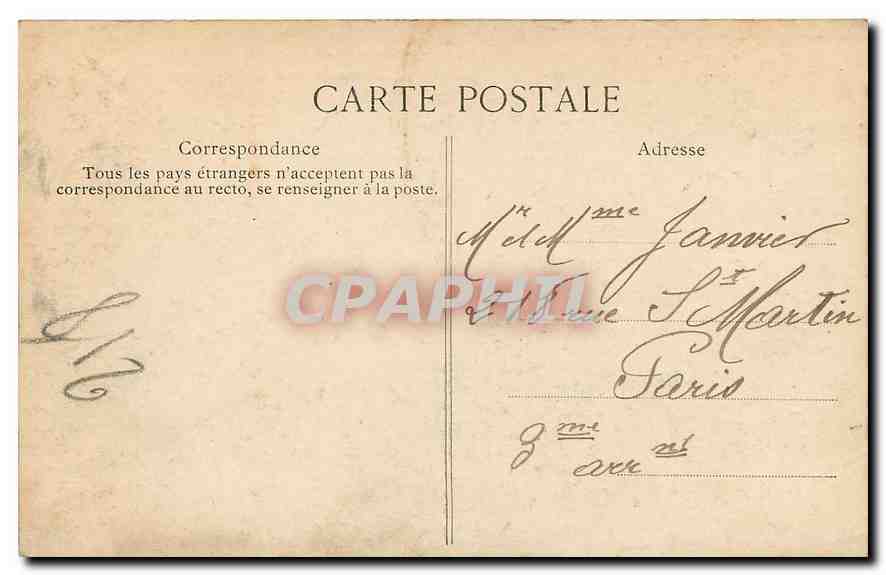 CARTE POSTALE
Correspondance
Tous les pays étrangers n'acceptent pas la
correspondance au recto, se renseigner à la poste.
Adresse
Mr et Mme Janvier
218 rue St Martin
Paris
3me
arrnt
218
CPAPHIL